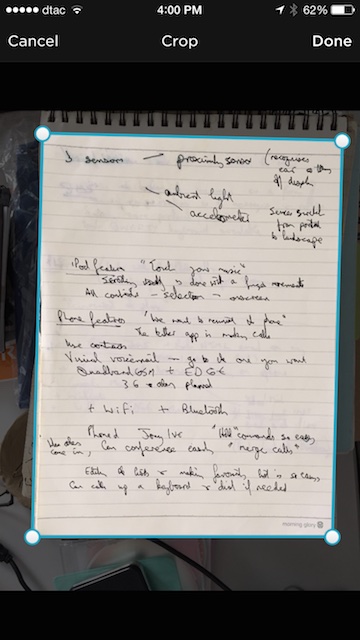 dtac 4:00 PM 62%
Cancel Crop Done
3 sensors — proximity sensor (recognises
ear & turns
off display
ambient light
accelerometer screen switch
from portrait
to landscape
iPod features "Touch your music"
is done with a finger movements
All controls — selection — onscreen
Phone features "We want to reinvent the phone"
The killer app is making calls
Use contacts
Visual voicemail — go to the one you want
Quadband GSM + EDGE
3G + later planned
+ WiFi + Bluetooth
Phoned Jony Ive "Hold" commands so easy
When others come in, Can conference easily "merge calls"
lists + making favourites, is so easy
Can call up a keyboard + dial if needed